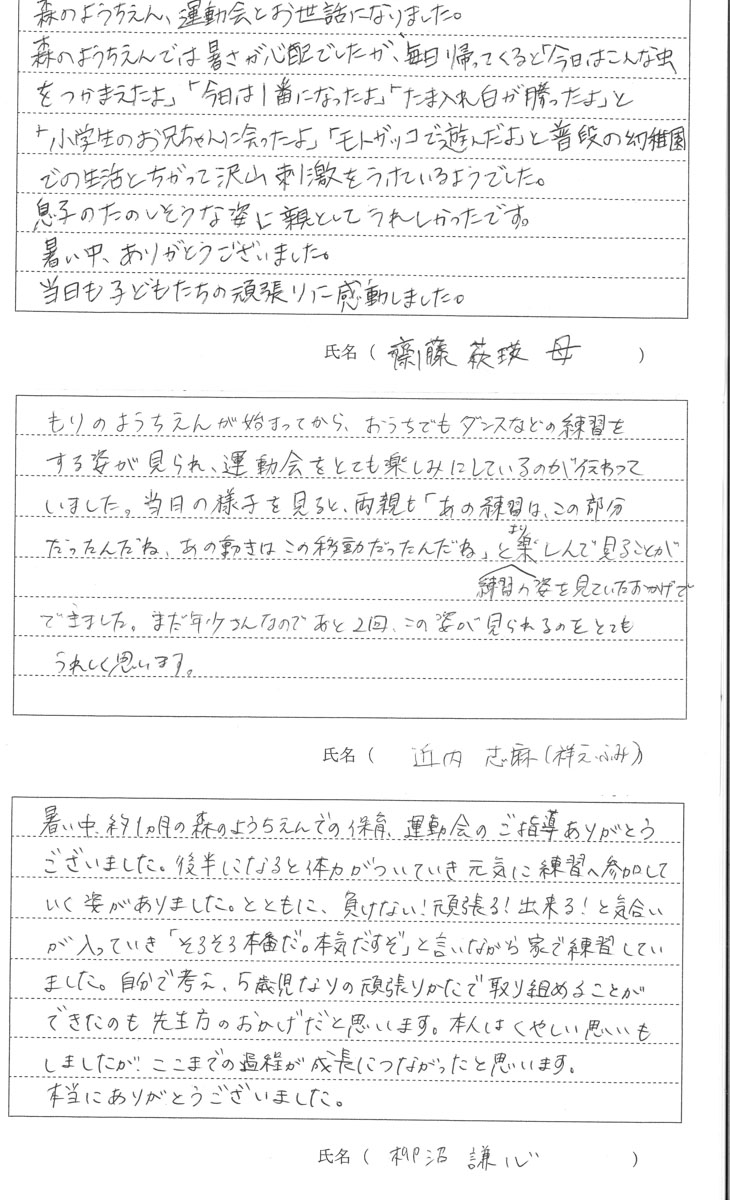 森のようちえん、運動会とお世話になりました。
森のようちえんでは暑さが心配でしたが、毎日帰ってくると「今日はこんな虫
をつかまえたよ」「今日は1番になったよ」「たま入れ白が勝ったよ」と
「小学生のお兄ちゃんに会ったよ」「モトザッコで遊んだよ」と普段の幼稚園
での生活とちがって沢山刺激をうけているようでした。
息子のたのしそうな姿に親としてうれしかったです。
暑い中、ありがとうございました。
当日も子どもたちの頑張りに感動しました。
氏名 ( 齋藤 萩瑛 母 )
もりのようちえんが始まってから、おうちでもダンスなどの練習を
する姿が見られ、運動会をとても楽しみにしているのが伝わって
いました。当日の様子を見ると、両親も「あの練習は、この部分
だったんだね、あの動きはこの移動だったんだね」と より楽しんで見ることが
練習の姿を見ていたおかげで
できました。まだ年少さんなのであと2回、この姿が見られるのをとても
うれしく思います。
氏名 ( 近内 志麻(祥え・ふみ))
暑い中、約1ヵ月の森のようちえんでの保育、運動会のご指導ありがとう
ございました。後半になると体力がついていき元気に練習へ参加して
いく姿がありました。とともに、負けない!頑張る!出来る!と気合い
が入っていき「そろそろ本番だ。本気だすぞ」と言いながら家で練習してい
ました。自分で考え、5歳児なりの頑張りかたで取り組めることが
できたのも先生方のおかげだと思います。本人はくやしい思いも
しましたが、ここまでの過程が成長につながったと思います。
本当にありがとうございました。
氏名 ( 柳沼 謙心 )